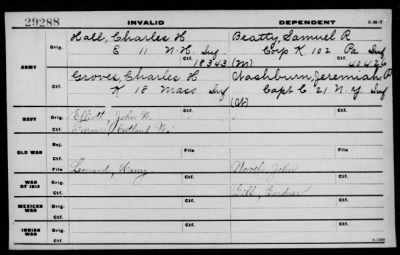 29288
INVALID DEPENDENT
ARMY
Orig.
Hall, Charles H
E 11 N.H. Inf
Ctf.
18343
Beatty, Samuel R
Corp K 102 Pa Inf
(M)
Ctf.
Orig.
Groves, Charles H
K 18 Mass Inf
Ctf.
Washburn, Jeremiah P
Capt C 21 N.Y Inf
Ctf.
NAVY
Orig.
Elliott, John W.
Ctf.
OLD WAR
Inj.
Ctf.
File
File
WAR OF 1812
File
Leonard, Henry
Ctf.
John
Gill, Gardner
MEXICAN WAR
Orig.
Ctf.
INDIAN WAR
Orig.
Ctf.